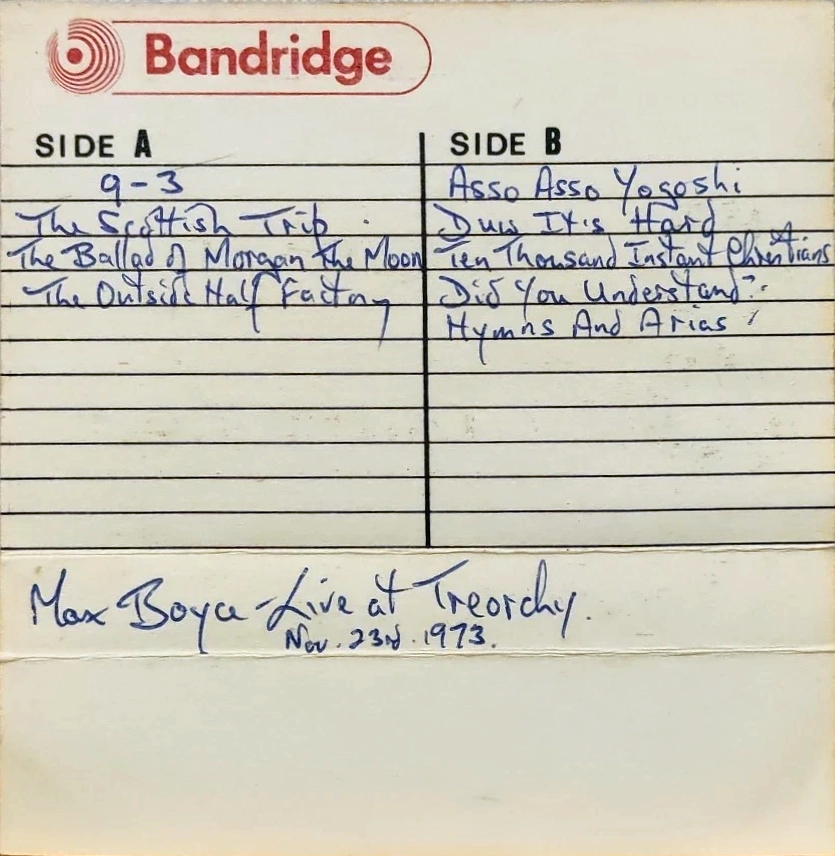 Bandridge
SIDE A
9-3
The Scottish Trip.
The Ballad of Morgan The Moon
The Outside Half Factory
SIDE B
Asso Asso Yogoshi
Duw It's Hard
Ten Thousand Instant Christians
Did You Understand?
Hymns And Arias
Max Boyce - Live at Treorchy.
Nov. 23rd. 1973.